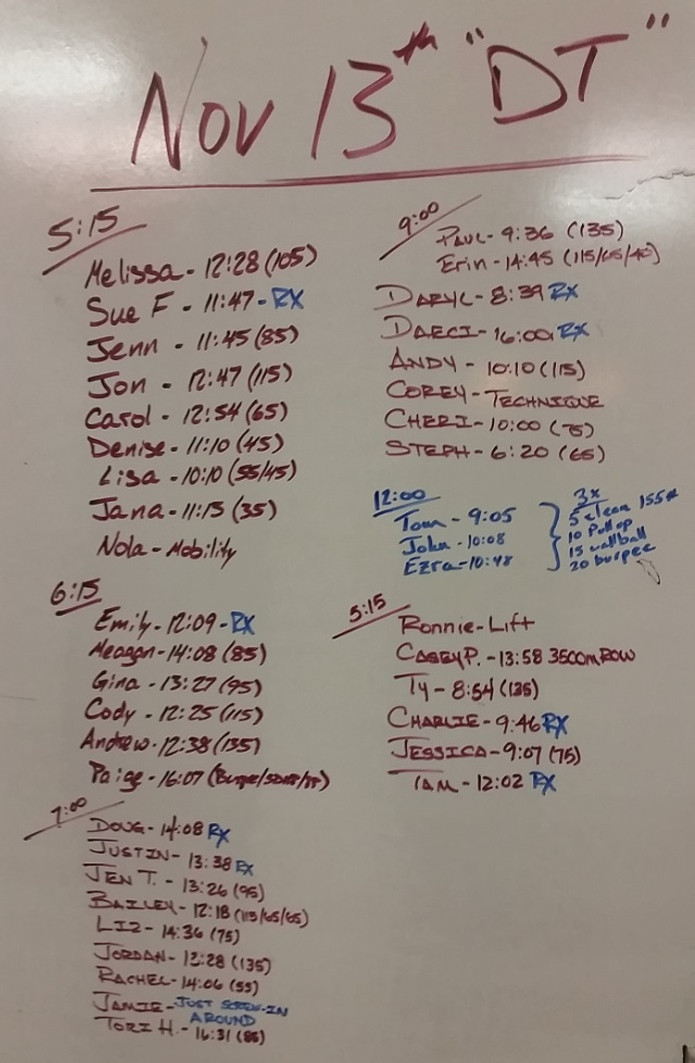 Nov 13th "DT"
5:15
Melissa - 12:28 (105)
Sue F - 11:47 - RX
Jenn - 11:45 (85)
Jon - 12:47 (115)
Carol - 12:54 (65)
Denise - 11:10 (45)
Lisa - 10:10 (55/45)
Jana - 11:15 (35)
Nola - Mobility
6:15
Emily - 12:09 - RX
Meagan - 14:08 (85)
Gina - 13:27 (95)
Cody - 12:25 (115)
Andrew - 12:38 (135)
Paige - 16:07
7:00
DOUG - 14:08 RX
JUSTIN - 13:38 RX
JEN T. - 13:26 (95)
BAILEY - 12:18 (115/65/65)
LIZ - 14:36 (75)
JORDAN - 12:28 (135)
RACHEL - 14:06 (55)
JAMIE - JUST SCREW-IN
AROUND
TORI H. - 16:31 (85)
9:00
PAUL - 9:36 (135)
Erin - 14:45 (115/65/40)
DARYL - 8:39 RX
DARCI - 16:00 RX
ANDY - 10:10 (115)
COREY - TECHNIQUE
CHERI - 10:00 (75)
STEPH - 6:20 (65)
12:00
Tom - 9:05
John - 10:08
Ezra - 10:48
3x
5 clean 155#
10 Pull up
15 wallball
20 burpee
5:15
Ronnie - Lift
CASEY P. - 13:58 3500m ROW
Ty - 8:54 (135)
CHARLIE - 9:46 RX
JESSICA - 9:07 (75)
TAM - 12:02 RX